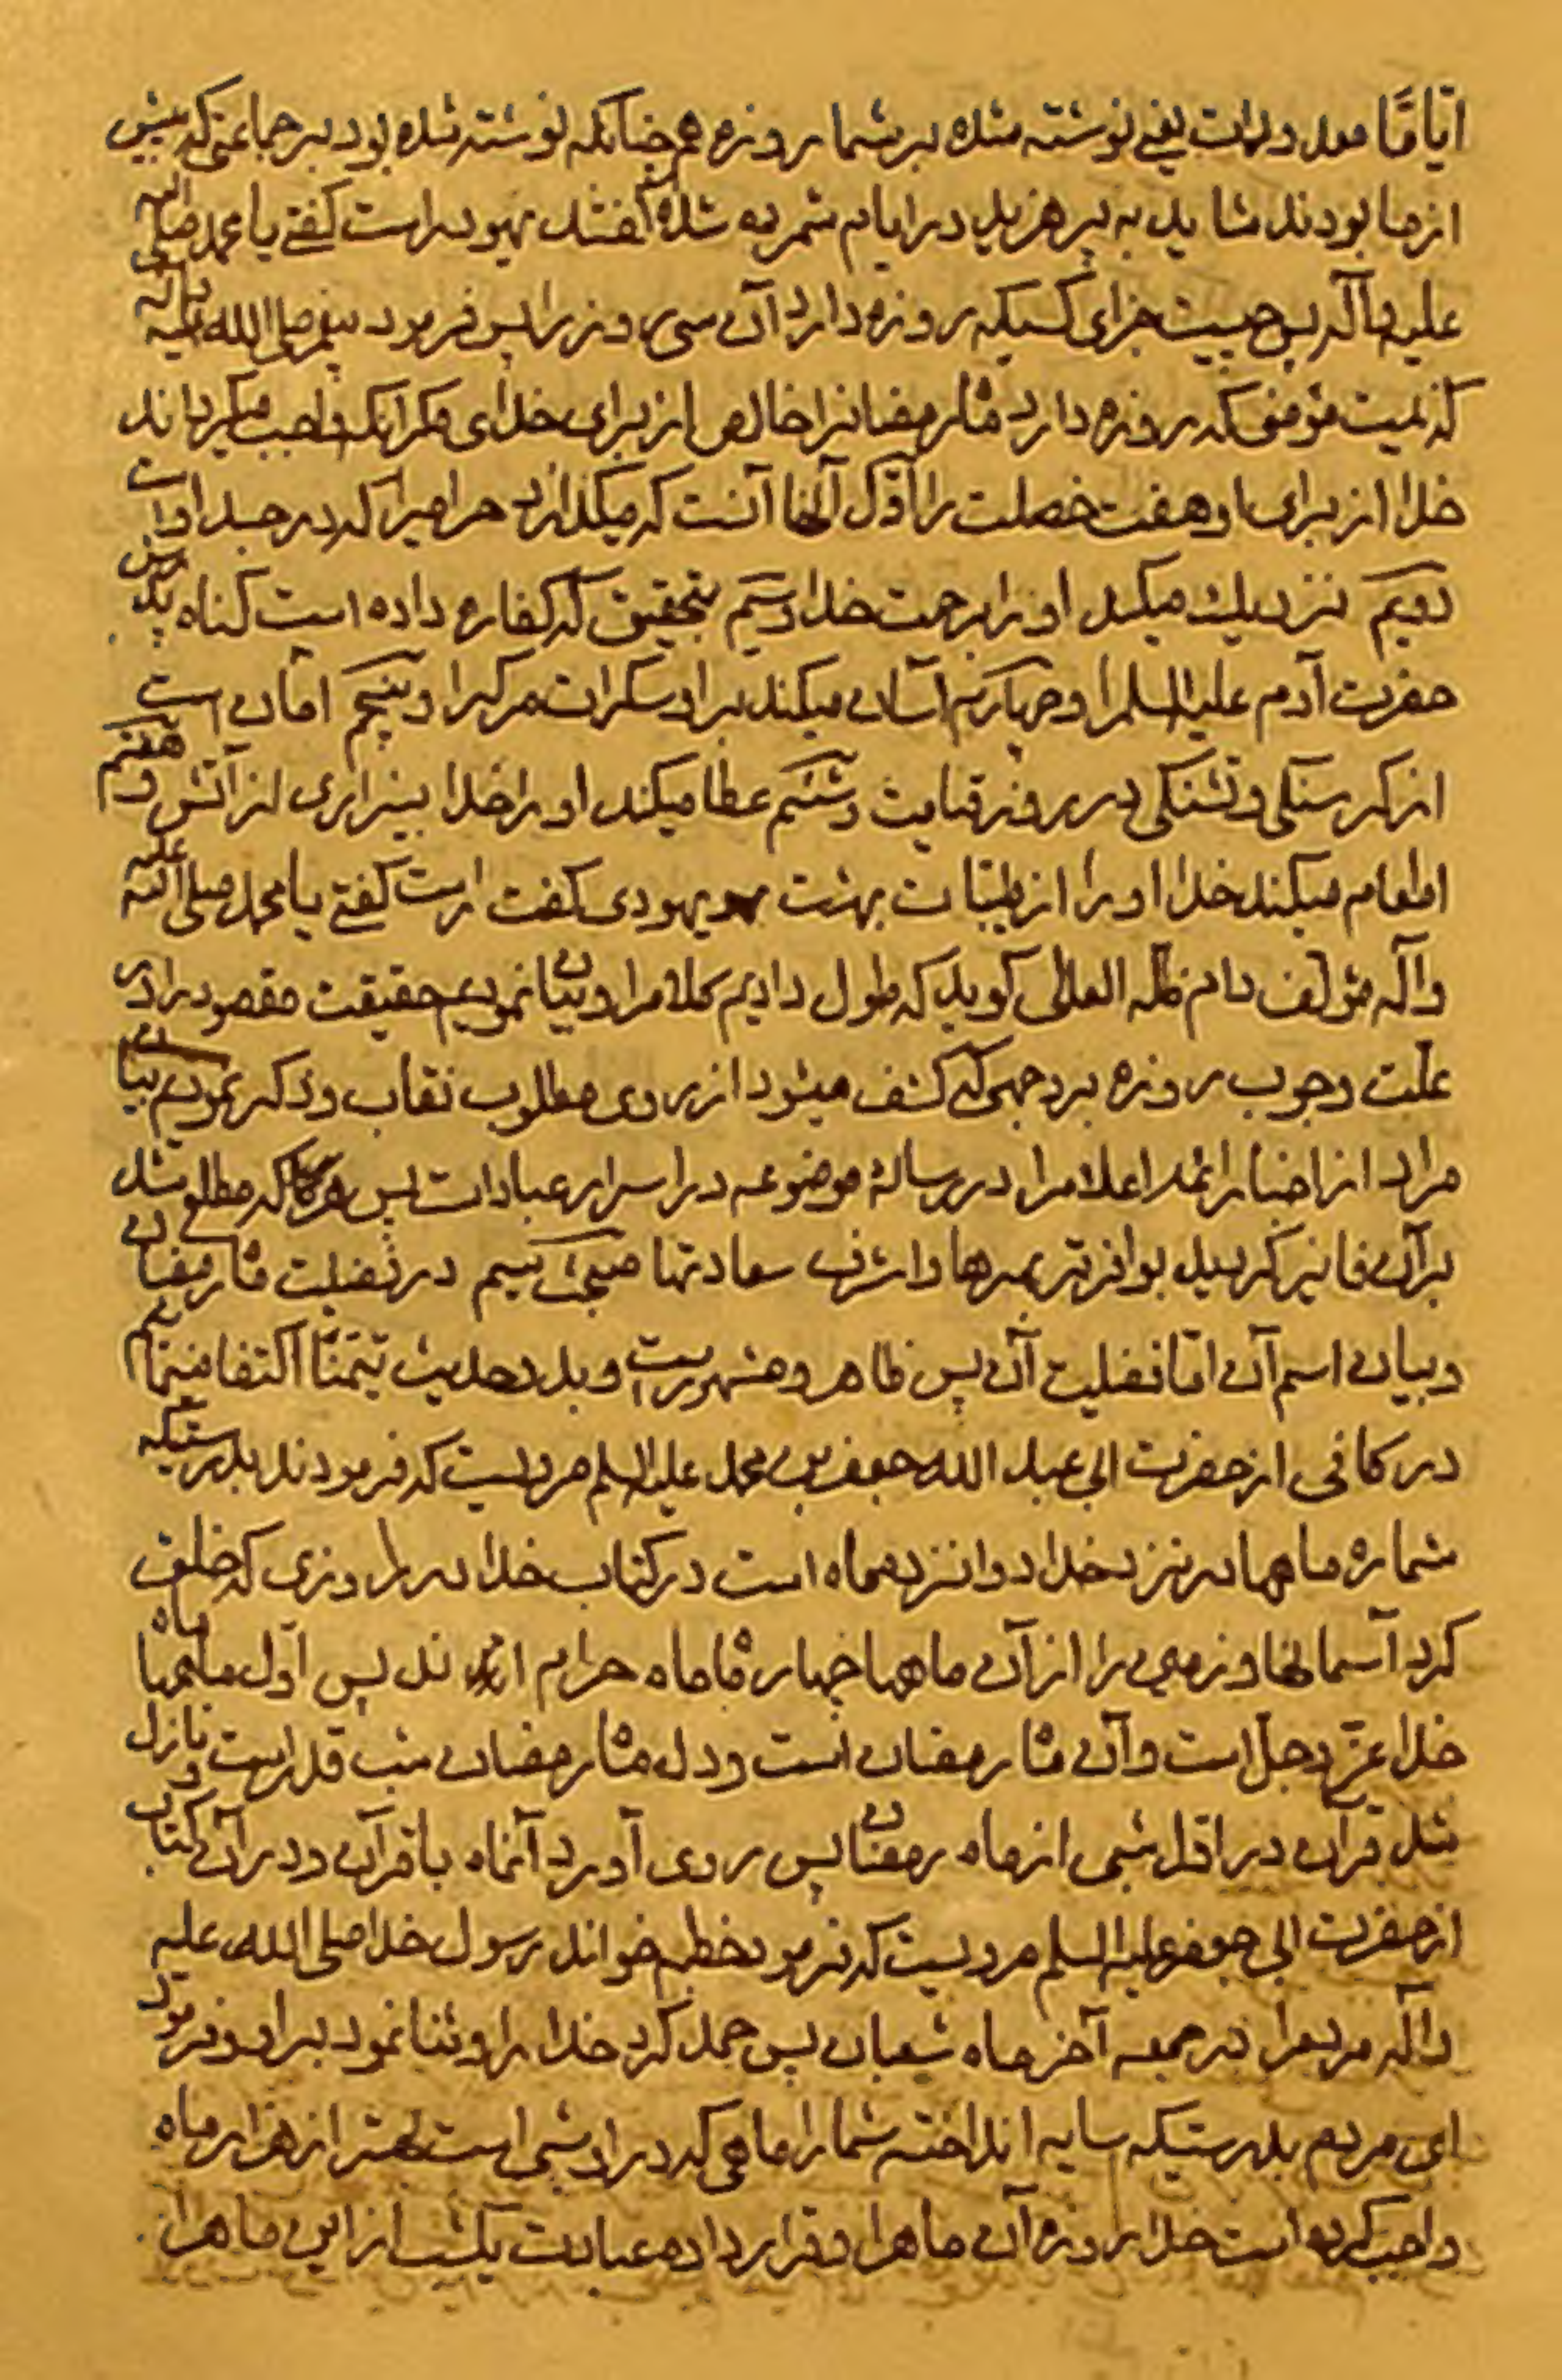 ایامًا معدودات یعنی نوشته شده بر شما روزه هم چنانکه نوشته شده بود بر جماعتی که پیش
از ما بودند شاید به پرهزید در ایام شمرده شده گفتند یهود راست کفتی یا محمد صلی الله
علیه وآله پس چیست جزای کسیکه روزه دارد آن سی روز را پس فرمود پیغمبر صلی الله علیه وآله
که نیست مؤمنی که روزه دارد ماه رمضانرا خالص از برای خدای مکر آنکه واجب میکرداند
خدا از برای او هفت خصلت را اوّل آنها آنست که میکدازد حرامیرا که در جسد اوست
دویم نزدیك میکند او را برحمت خدا وسیم بتحقیق که کفاره داده است کناه پدرش
حضرت آدم علیه السلم را وچهارم آسان میکند براو سکرات مرکرا وپنجم امان است
از کرسنکی وتشنکی در روز قیامت وششم عطا میکند او را خدا بیزاری از آتش وهفتم
اطعام میکند خدا او را از طیّبات بهشت یهودی کفت راست کفتی یا محمد صلی الله علیه
وآله مؤلف دام ظله العالی کوید که طول دادیم کلامرا وبیان نمودیم حقیقت مقصود را در
علّت وجوب روزه بر وجهی که کشف میشود از روی مطلوب نقاب وذکر نمودیم بیان
مراد از اخبار ائمه اعلامرا در رسالهٔ موضوعه در اسرار عبادات پس هرکاه که مطلع شد
برآن فایز کردید بوافرتر بهرها واشرف سعادتها مبحث سیم در فضیلت ماه رمضان
وبیان اسم آن امّا فضلیت آن پس ظاهر ومشهورست وبدو حدیث تیمّنًا اکتفا مینمائیم
در کافی از حضرت ابی عبد الله جعفر بن محمد علیه السلم مرویست که فرمودند بدرستیکه
شمارهٔ ماهها در نزد خدا دوانزده ماه است در کتاب خدا در روزی که خلق
کرد آسمانها وزمین را از آن ماهها چهار ماه حرام اند پس اوّل ماهها ماه
خدا عزّ وجلّ است وآن ماه رمضان است ودل ماه رمضان شب قدر است ونازل
شد قرآن در اوّل شبی از ماه رمضان پس روی آورد آنماه با قرآن ودر آن کتاب
از حضرت ابی جعفر علیه السلم مرویست که فرمود خطبه خواند رسول خدا صلی الله علیه
وآله مردمرا در جمعه آخر ماه شعبان پس حمد کرد خدا را وثنا نمود براو وفرمود
ای مردم بدرستیکه سایه انداخته شما را ماهی که در او شبی است بهتر از هزار ماه
واجب کرده است خدا روزهٔ آن ماهرا وقرار داده عبادت یکشب از این ماهرا